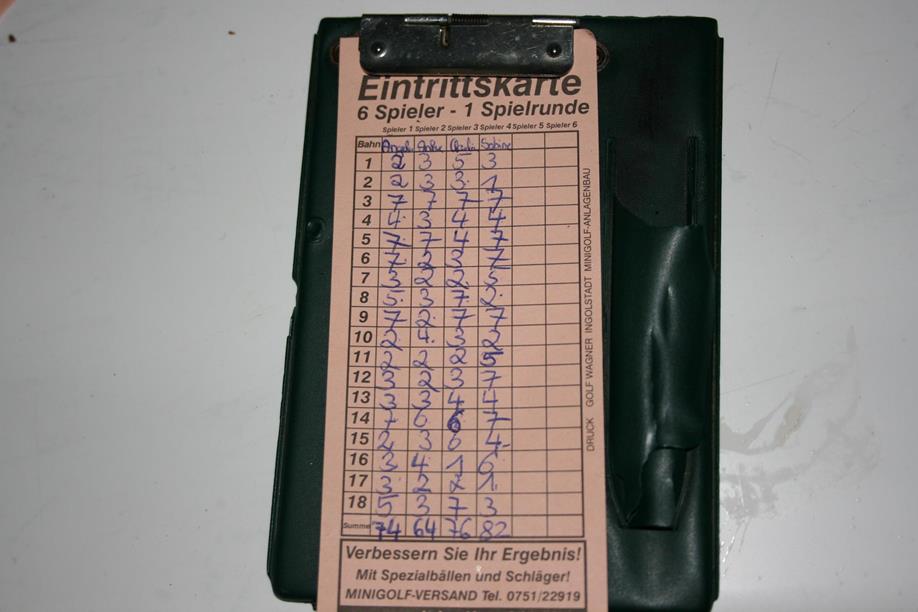 Eintrittskarte
6 Spieler - 1 Spielrunde
Spieler 1 Spieler 2 Spieler 3 Spieler 4 Spieler 5 Spieler 6
Bahn Sabine
1 2 3 5 3
2 2 3 3 1
3 7 7 7 7
4 4 3 4 4
5 7 7 4 7
6 7 2 3 7
7 3 2 2 5
8 5 3 7 2
9 7 2 7 7
10 2 4 3 2
11 2 2 2 5
12 3 2 3 7
13 3 3 4 4
14 7 6 6 7
15 2 3 6 4
16 3 4 1 6
17 3 2 7 1
18 5 3 7 3
Summe 74 64 76 82
Verbessern Sie Ihr Ergebnis!
Mit Spezialbällen und Schläger!
MINIGOLF-VERSAND Tel. 0751/22919
DRUCK GOLF WAGNER INGOLSTADT MINIGOLF-ANLAGENBAU